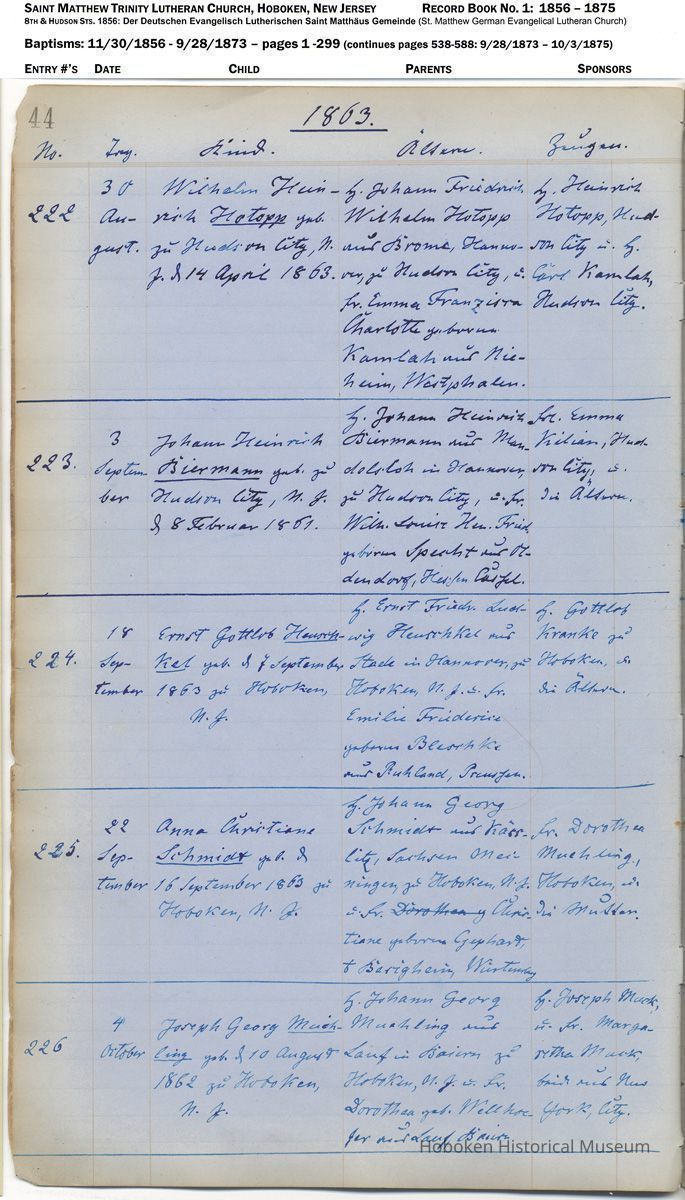 SAINT MATTHEW TRINITY LUTHERAN CHURCH, HOBOKEN, NEW JERSEY RECORD BOOK NO. 1: 1856 – 1875
8TH & HUDSON STS. 1856: Der Deutschen Evangelisch Lutherischen Saint Matthäus Gemeinde (St. Matthew German Evangelical Lutheran Church)
Baptisms: 11/30/1856 - 9/28/1873 – pages 1 -299 (continues pages 538-588: 9/28/1873 – 10/3/1875)
ENTRY #'S DATE CHILD PARENTS SPONSORS
44
1863.
No. Tag. Kind. Ältern. Zeugen.
222
30
Au-
gust.
Wilhelm Hein-
rich Hotopp geb.
zu Hudson City, N.
J. d. 14 April 1863.
H. Johann Friedrich
Wilhelm Hotopp
aus Brome, Hanno-
ver, zu Hudson City, u.
Fr. Emma Franziska
Charlotte geboren
Kamlah aus Nie-
heim, Westphalen.
H. Heinrich
Hotopp, Hud-
son City u. H.
Carl Kamlah,
Hudson City.
223.
3
Septem-
ber
Johann Heinrich
Biermann geb. zu
Hudson City, N. J.
d. 8 Februar 1861.
H. Johann Heinrich
Biermann aus Man-
delsloh in Hannover,
zu Hudson City, u. Fr.
Wilh. Louise Hen. Fried.
geboren Specht aus Ol-
dendorf, Hessen Cassel.
Frl. Emma
Kilian, Hud-
son City, u.
die Ältern.
224.
18
Sep-
tember
Ernst Gottlob Heusch-
kel geb. d. 7 September
1863 zu Hoboken,
N. J.
H. Ernst Friedr. Lud-
wig Heuschkel aus
Stade in Hannover, zu
Hoboken, N. J. u. Fr.
Emilie Friederie
geboren Bleschke
aus Ruhland, Preussen.
H. Gottlob
Kranke zu
Hoboken, u.
die Ältern.
225.
22
Sep-
tember
Anna Christiane
Schmidt geb. d.
16 September 1863 zu
Hoboken, N. J.
H. Johann Georg
Schmidt aus
Sachsen Mei-
ningen, zu Hoboken, N. J.
u. Fr. Dorothea Chris-
tiane geboren Gephardt,
Barigheim, Würtemberg
Fr. Dorothea
Muehling,
Hoboken, u.
die Mutter.
226
4
October
Joseph Georg Mueh-
ling geb. d. 10 August
1862 zu Hoboken,
N. J.
H. Johann Georg
Muehling aus
Lauf in Baiern zu
Hoboken, N. J. u. Fr.
Dorothea geb. Wellhoe-
fer aus Lauf, Baiern
H. Joseph Muck,
u. Fr. Marga-
retha Muck,
beide aus New
York, City.
Hoboken Historical Museum